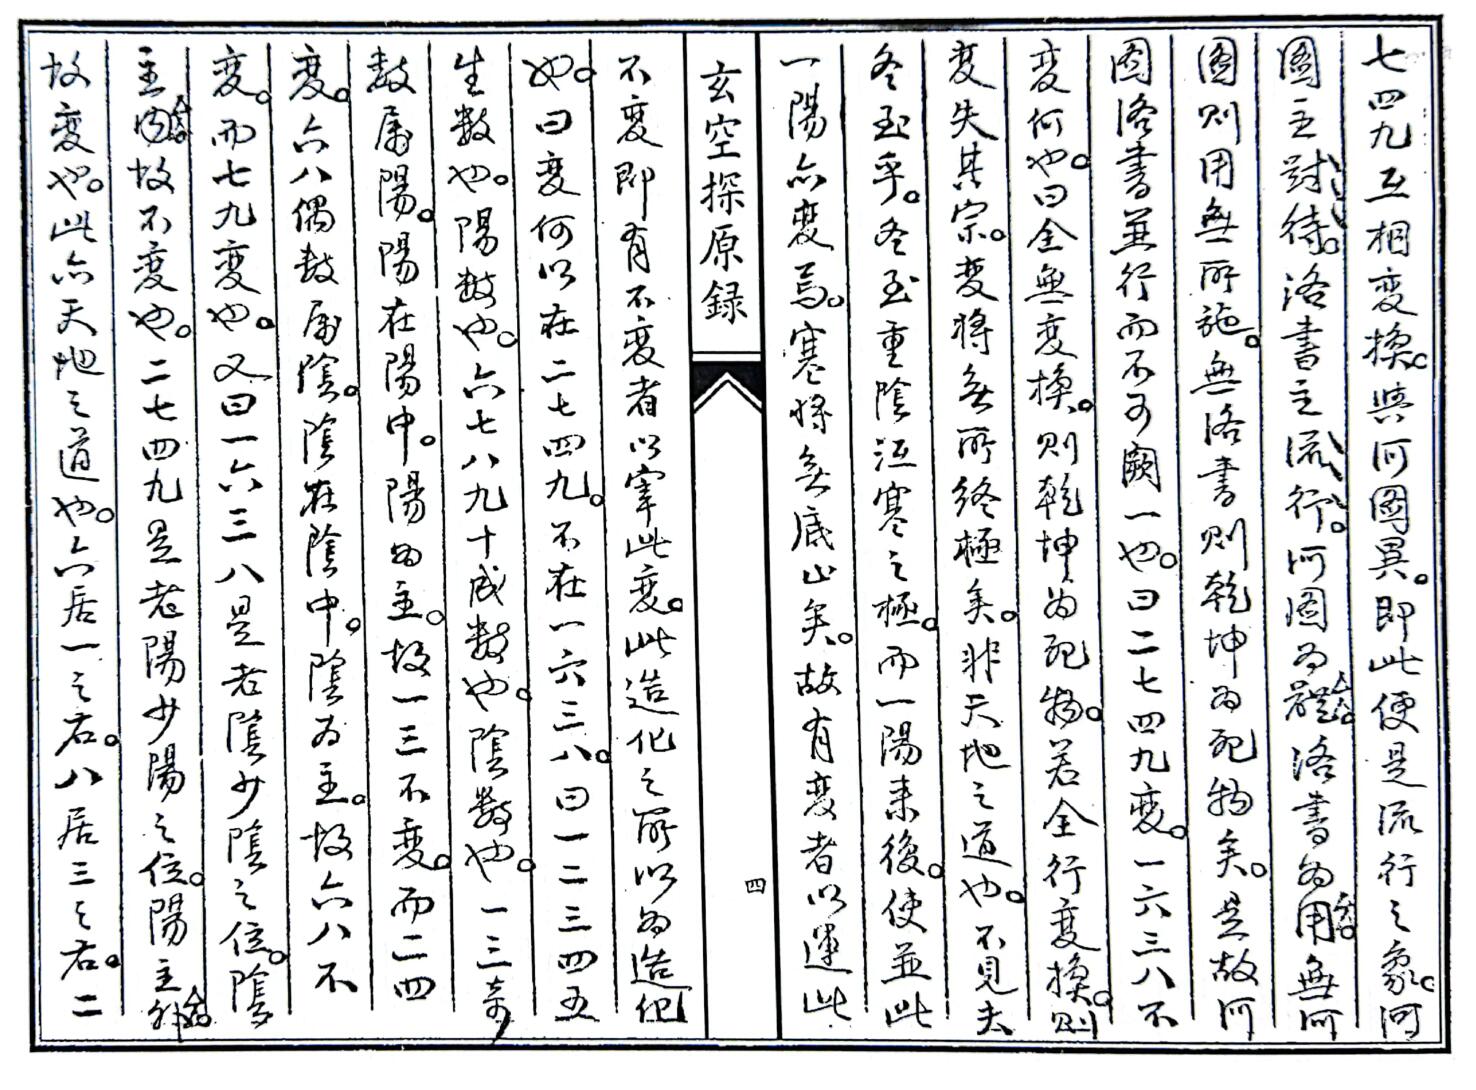 七四九互相變換。與河圖異。即此便是流行之象。河
圖主對待。洛書主流行。河圖為體。洛書為用。無河
圖則用無所施。無洛書則乾坤為死物矣。是故河
圖洛書並行而不可闕一也。曰二七四九變。一六三八不
變何也。曰全無變換。則乾坤為死物。若全行變換。則
變失其宗。變將無所終極矣。非天地之道也。不見夫
冬至乎。冬至重陰沍寒之極。而一陽來復。使並此
一陽亦變焉。寒將無底止矣。故有變者以運此
玄空探原録
四
不變即有不變者以宰此變。此造化之所以為造化
也。曰變何以在二七四九。不在一六三八。曰一二三四五
生數也。陽數也。六七八九十成數也。陰數也。一三奇
數屬陽。陽在陽中。陽為主。故一三不變。而二四
變。六八偶數屬陰。陰在陰中。陰為主。故六八不
變。而七九變也。又曰一六三八是老陰少陰之位。陰
主內。故不變也。二七四九是老陽少陽之位。陽主外。
故變也。此亦天地之道也。六居一之右。八居三之右。二